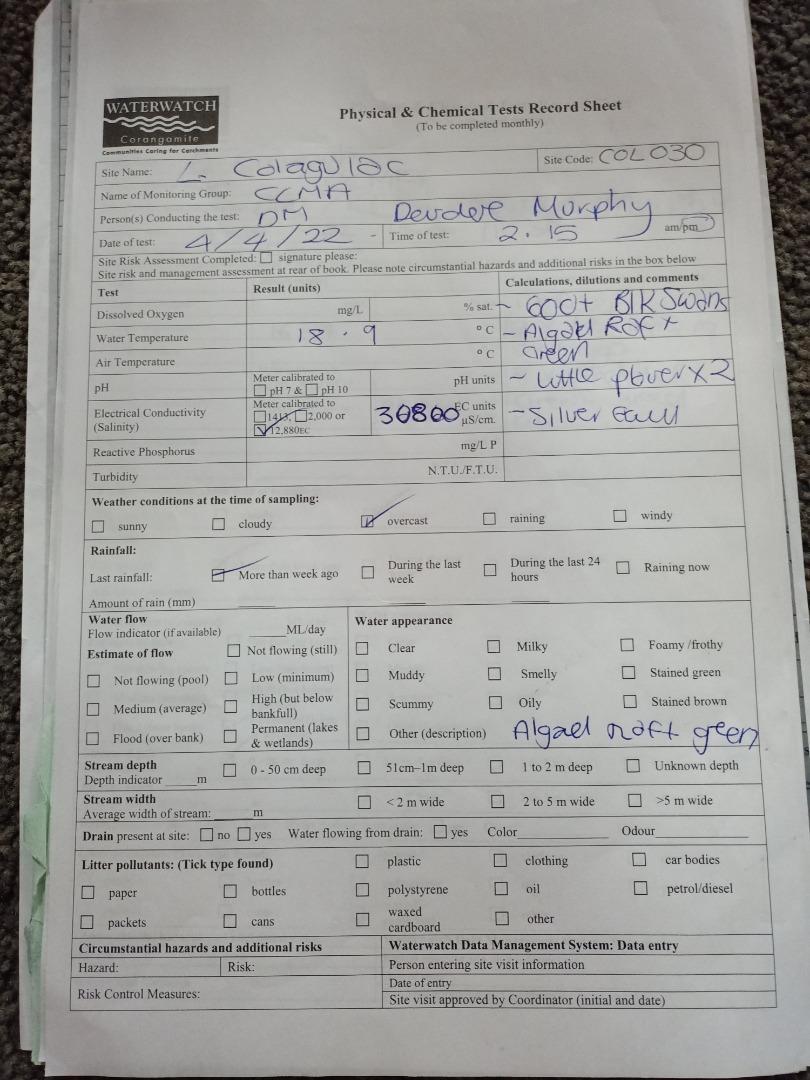 WATERWATCH
Corangamite
Communities Caring for Catchments
Physical & Chemical Tests Record Sheet
(To be completed monthly)
Site Name: L. Colagulac Site Code: COL030
Name of Monitoring Group: CCMA
Person(s) Conducting the test: DM Deirdre Murphy
Date of test: 4/4/22 - Time of test: 2.15 am/pm
Site Risk Assessment Completed: signature please:
Site risk and management assessment at rear of book. Please note circumstantial hazards and additional risks in the box below
Test Result (units) Calculations, dilutions and comments
Dissolved Oxygen mg/L % sat. - 600+ Blk Swans
Water Temperature 18.9 °C - Algael Raft
Air Temperature °C Green
pH Meter calibrated to pH 7 & pH 10 pH units - Little plover x2
Electrical Conductivity (Salinity) Meter calibrated to 1413, 2,000 or 12,880EC EC units µS/cm. - Silver Gull
Reactive Phosphorus mg/L P
Turbidity N.T.U./F.T.U.
Weather conditions at the time of sampling:
sunny cloudy overcast raining windy
Rainfall:
Last rainfall: More than week ago During the last week During the last 24 hours Raining now
Amount of rain (mm)
Water flow
Flow indicator (if available) ____ML/day
Estimate of flow Not flowing (still)
Not flowing (pool) Low (minimum)
Medium (average) High (but below bankfull)
Flood (over bank) Permanent (lakes & wetlands)
Water appearance
Clear Milky Foamy /frothy
Muddy Smelly Stained green
Scummy Oily Stained brown
Other (description) Algael raft green
Stream depth
Depth indicator ____m 0 - 50 cm deep 51cm–1m deep 1 to 2 m deep Unknown depth
Stream width
Average width of stream:____m < 2 m wide 2 to 5 m wide >5 m wide
Drain present at site: no yes Water flowing from drain: yes Color____ Odour____
Litter pollutants: (Tick type found) plastic clothing car bodies
paper bottles polystyrene oil petrol/diesel
packets cans waxed cardboard other
Circumstantial hazards and additional risks
Hazard: Risk:
Risk Control Measures:
Waterwatch Data Management System: Data entry
Person entering site visit information
Date of entry
Site visit approved by Coordinator (initial and date)